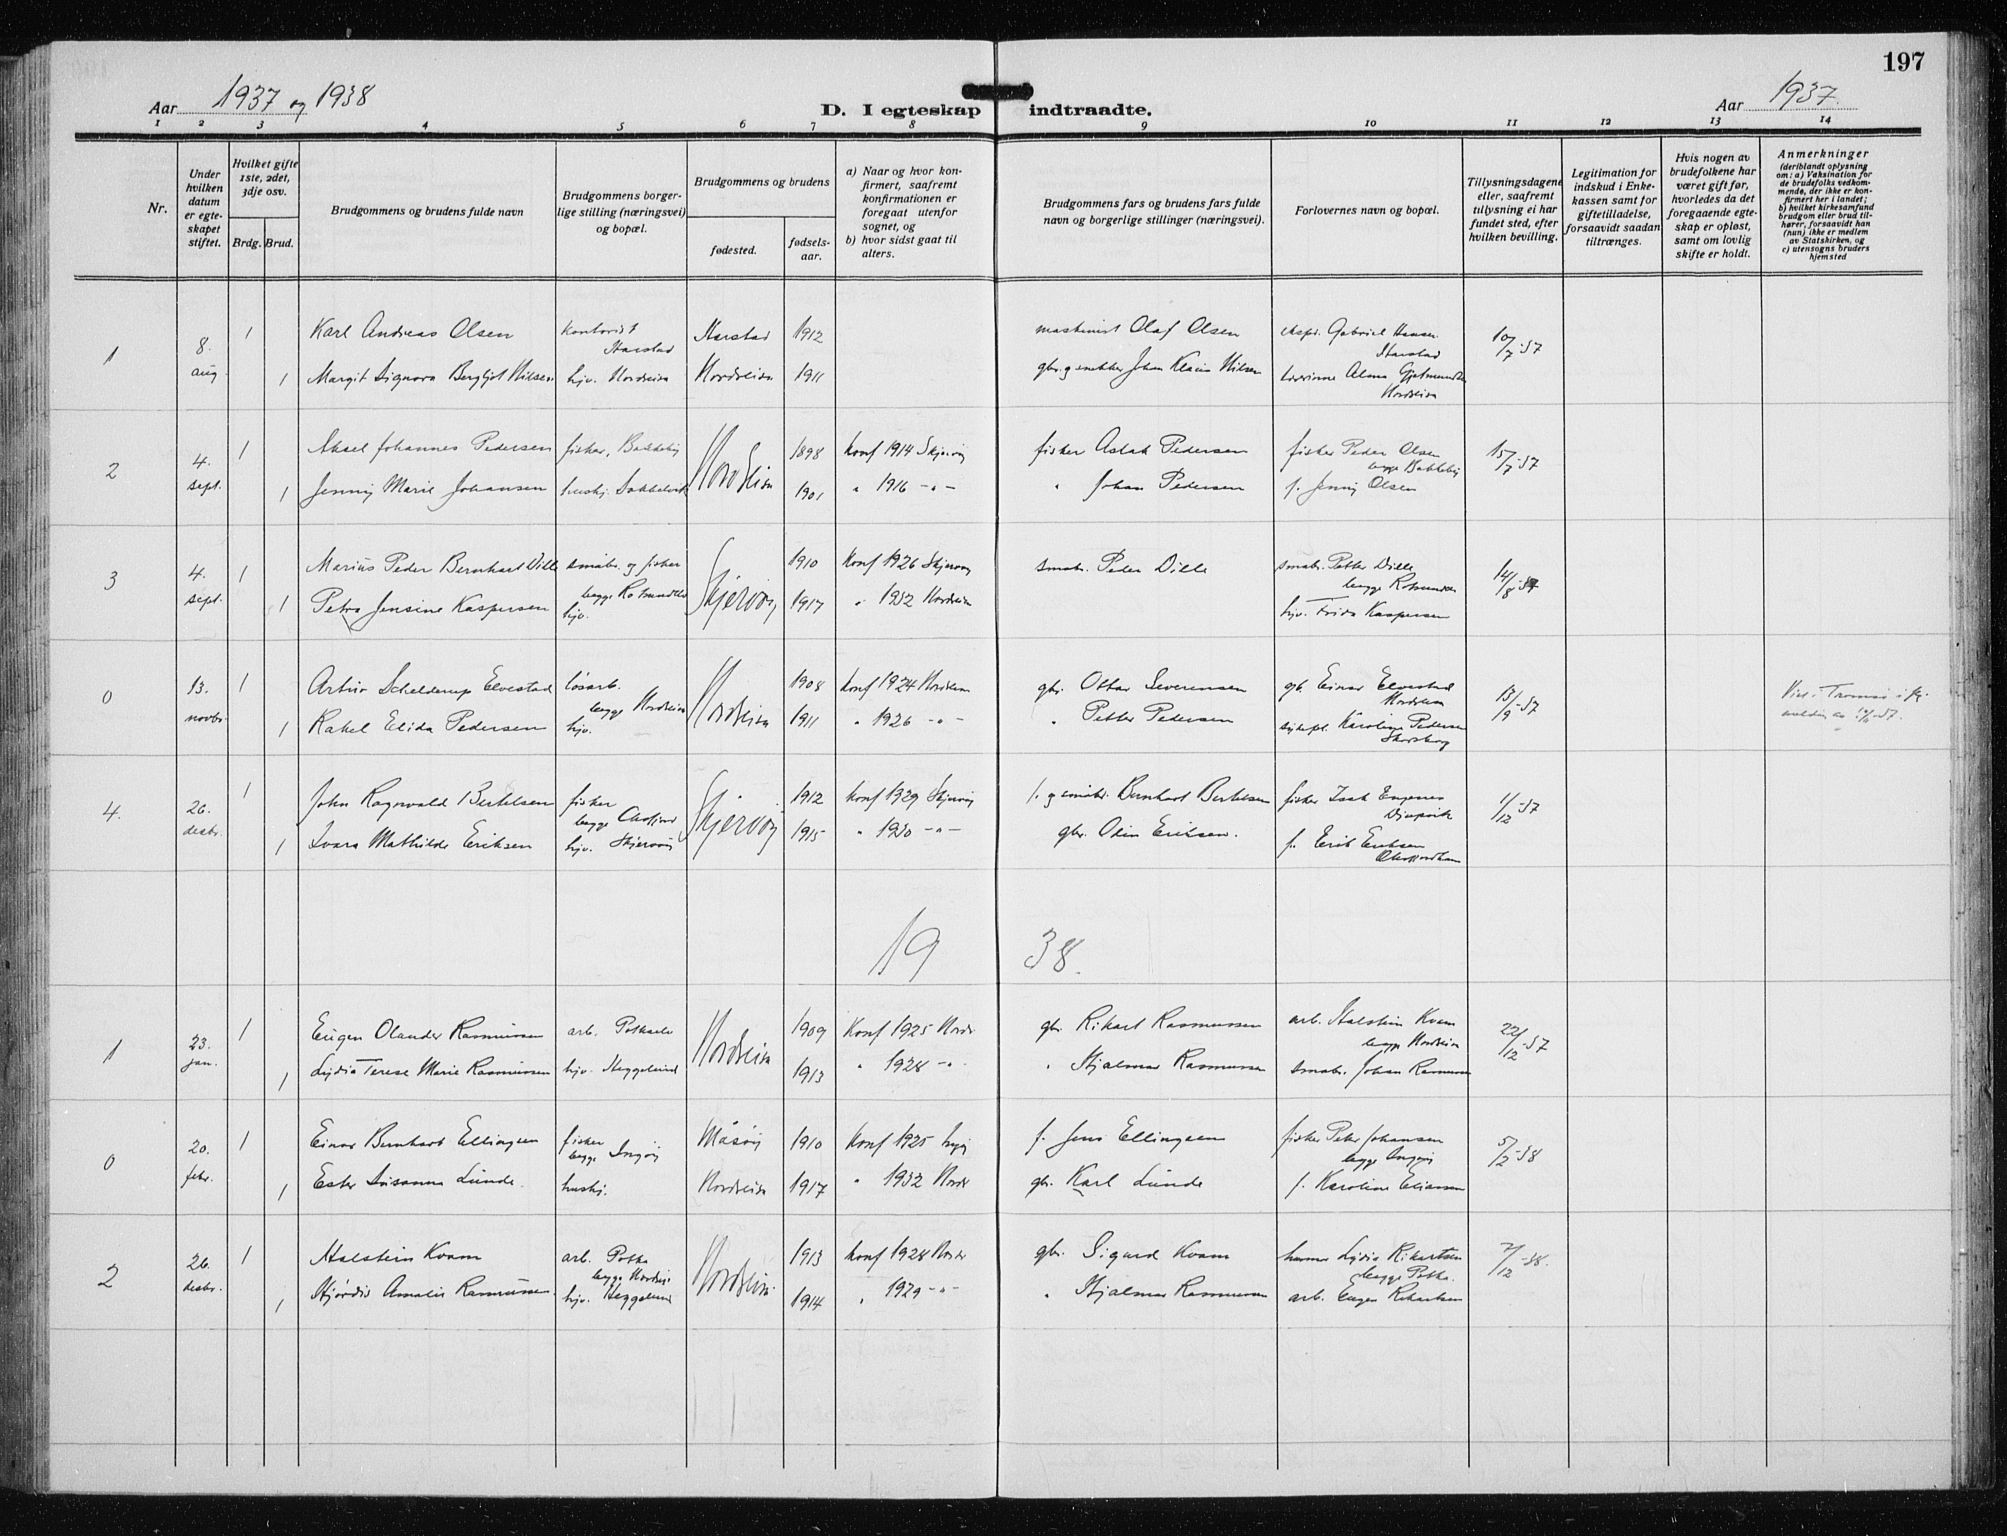 197
Aar 1937 og 1938
D. I egteskap indtraadte.
Aar 1937
1 2 3 4 5 6 7 8 9 10 11 12 13 14
Nr.
Under hvilken datum er egteskapet stiftet.
Hvilket gifte 1ste, 2det, 3dje osv.
Brdg. Brud.
Brudgommens og brudens fulde navn
Brudgommens borgerlige stilling (næringsvei) og bopæl.
Brudgommens og brudens
fødested.
fødselsaar.
a) Naar og hvor konfirmert, saafremt konfirmationen er foregaat utenfor sognet, og
b) hvor sidst gaat til alters.
Brudgommens fars og brudens fars fulde navn og borgerlige stillinger (næringsvei).
Forlovernes navn og bopæl.
Tillysningsdagene eller, saafremt tillysning ei har fundet sted, efter hvilken bevilling.
Legitimation for indskud i Enkekassen samt for giftetilladelse, forsaavidt saadan tiltrænges.
Hvis nogen av brudefolkene har været gift før, hvorledes da det foregaaende egteskap er opløst, samt om lovlig skifte er holdt.
Anmerkninger
(deriblandt oplysning om: a) Vaksination for de brudefolks vedkommende, der ikke er konfirmert her i landet; b) hvilket kirkesamfund brudgom eller brud tilhører, forsaavidt han (hun) ikke er medlem av Statskirken, og c) utensogns bruders hjemsted
1 8. aug 1 Karl Andreas Olsen kontorist Harstad Harstad 1912 maskinist Olaf Olsen eksped. Gabriel Hansen Harstad 10/7-37
1 Margit Signora Bergljot Nilsen hjv. Nordreisa Nordreisa 1911 gbr. og snekker Johan Klaus Nilsen lærerinne Alma Gjetmundsen Nordreisa
2 4. sept. 1 Aksel Johannes Pedersen fisker, Bakkeby Nordreisa 1898 Konf 1914 Skjervøy fisker Aslak Pedersen fisker Peder Olsen begge Bakkeby 15/7-37
1 Jenny Marie Johansen hushj. 1901 " 1916 -"- " Johan Pedersen f. Jenny Olsen
3 4. sept. 1 Marius Peder Bernhart Dille småbr. og fisker begge Rotsundelv Skjervøy 1910 Konf 1926 Skjervøy småbr. Peder Dille småbr. Petter Dille begge Rotsundelv 14/8-37
1 Petra Jensine Kaspersen hjv. 1917 " 1932 Nordreisa hjv. Frida Kaspersen
0 13. novbr. 1 Artur Schelderup Elvestad løsarb. begge Nordreisa Nordreisa 1908 Konf 1924 Nordreisa gbr. Ottar Severensen gb. Einar Elvestad Nordreisa 13/9-37
1 Rakel Elida Pedersen hjv. 1911 " 1926 -"- " Petter Pedersen sykepl. Karoline Pedersen
4. 26. desbr. 1 John Ragnvald Bertelsen fisker begge Skjervøy 1912 Konf 1929 Skjervøy f. og småbr. Bernhart Bertelsen fisker Isak 1/12-37
1 Ivara Mathilde Eriksen hjv. Skjervøy 1915 " 1930 -"- gbr. Odin Eriksen. f. Erik Eriksen
19 38.
1 23. jan. 1 Eugen Olander Rasmussen arb. Nordreisa 1909 Konf 1925 Nordr gbr. Rikart Rasmussen arb. Halstein Kvam begge Nordreisa 22/12-37
1 Lydia Terese Marie Rasmussen hjv. Heggelund 1913 " 1928 -"- " Hjalmar Rasmussen småbr. Johan Rasmussen
0 20. febr. 1 Einar Bernhart Ellingsen fisker begge Ingøy Måsøy 1910 Konf 1925 Ingøy f. Jens Ellingsen fisker Peter Johansen begge Ingøy 5/2-38
1 Ester Susanna Lunde. hushj. Nordreisa 1917 " 1932 Nordr gbr. Karl Lunde f. Karoline Eliassen
2 26. desbr. 1 Halstein Kvam arb. Potka begge Nordreisa Nordreisa 1913 Konf 1928 Nordr gbr. Sigurd Kvam Lydia Rikartsen begge Potka. 7/12-38.
1 Hjördis Amalie Rasmussen. hjv. Heggelund 1914 " 1929 -"- " Hjalmar Rasmussen arb. Eugen Rikartsen